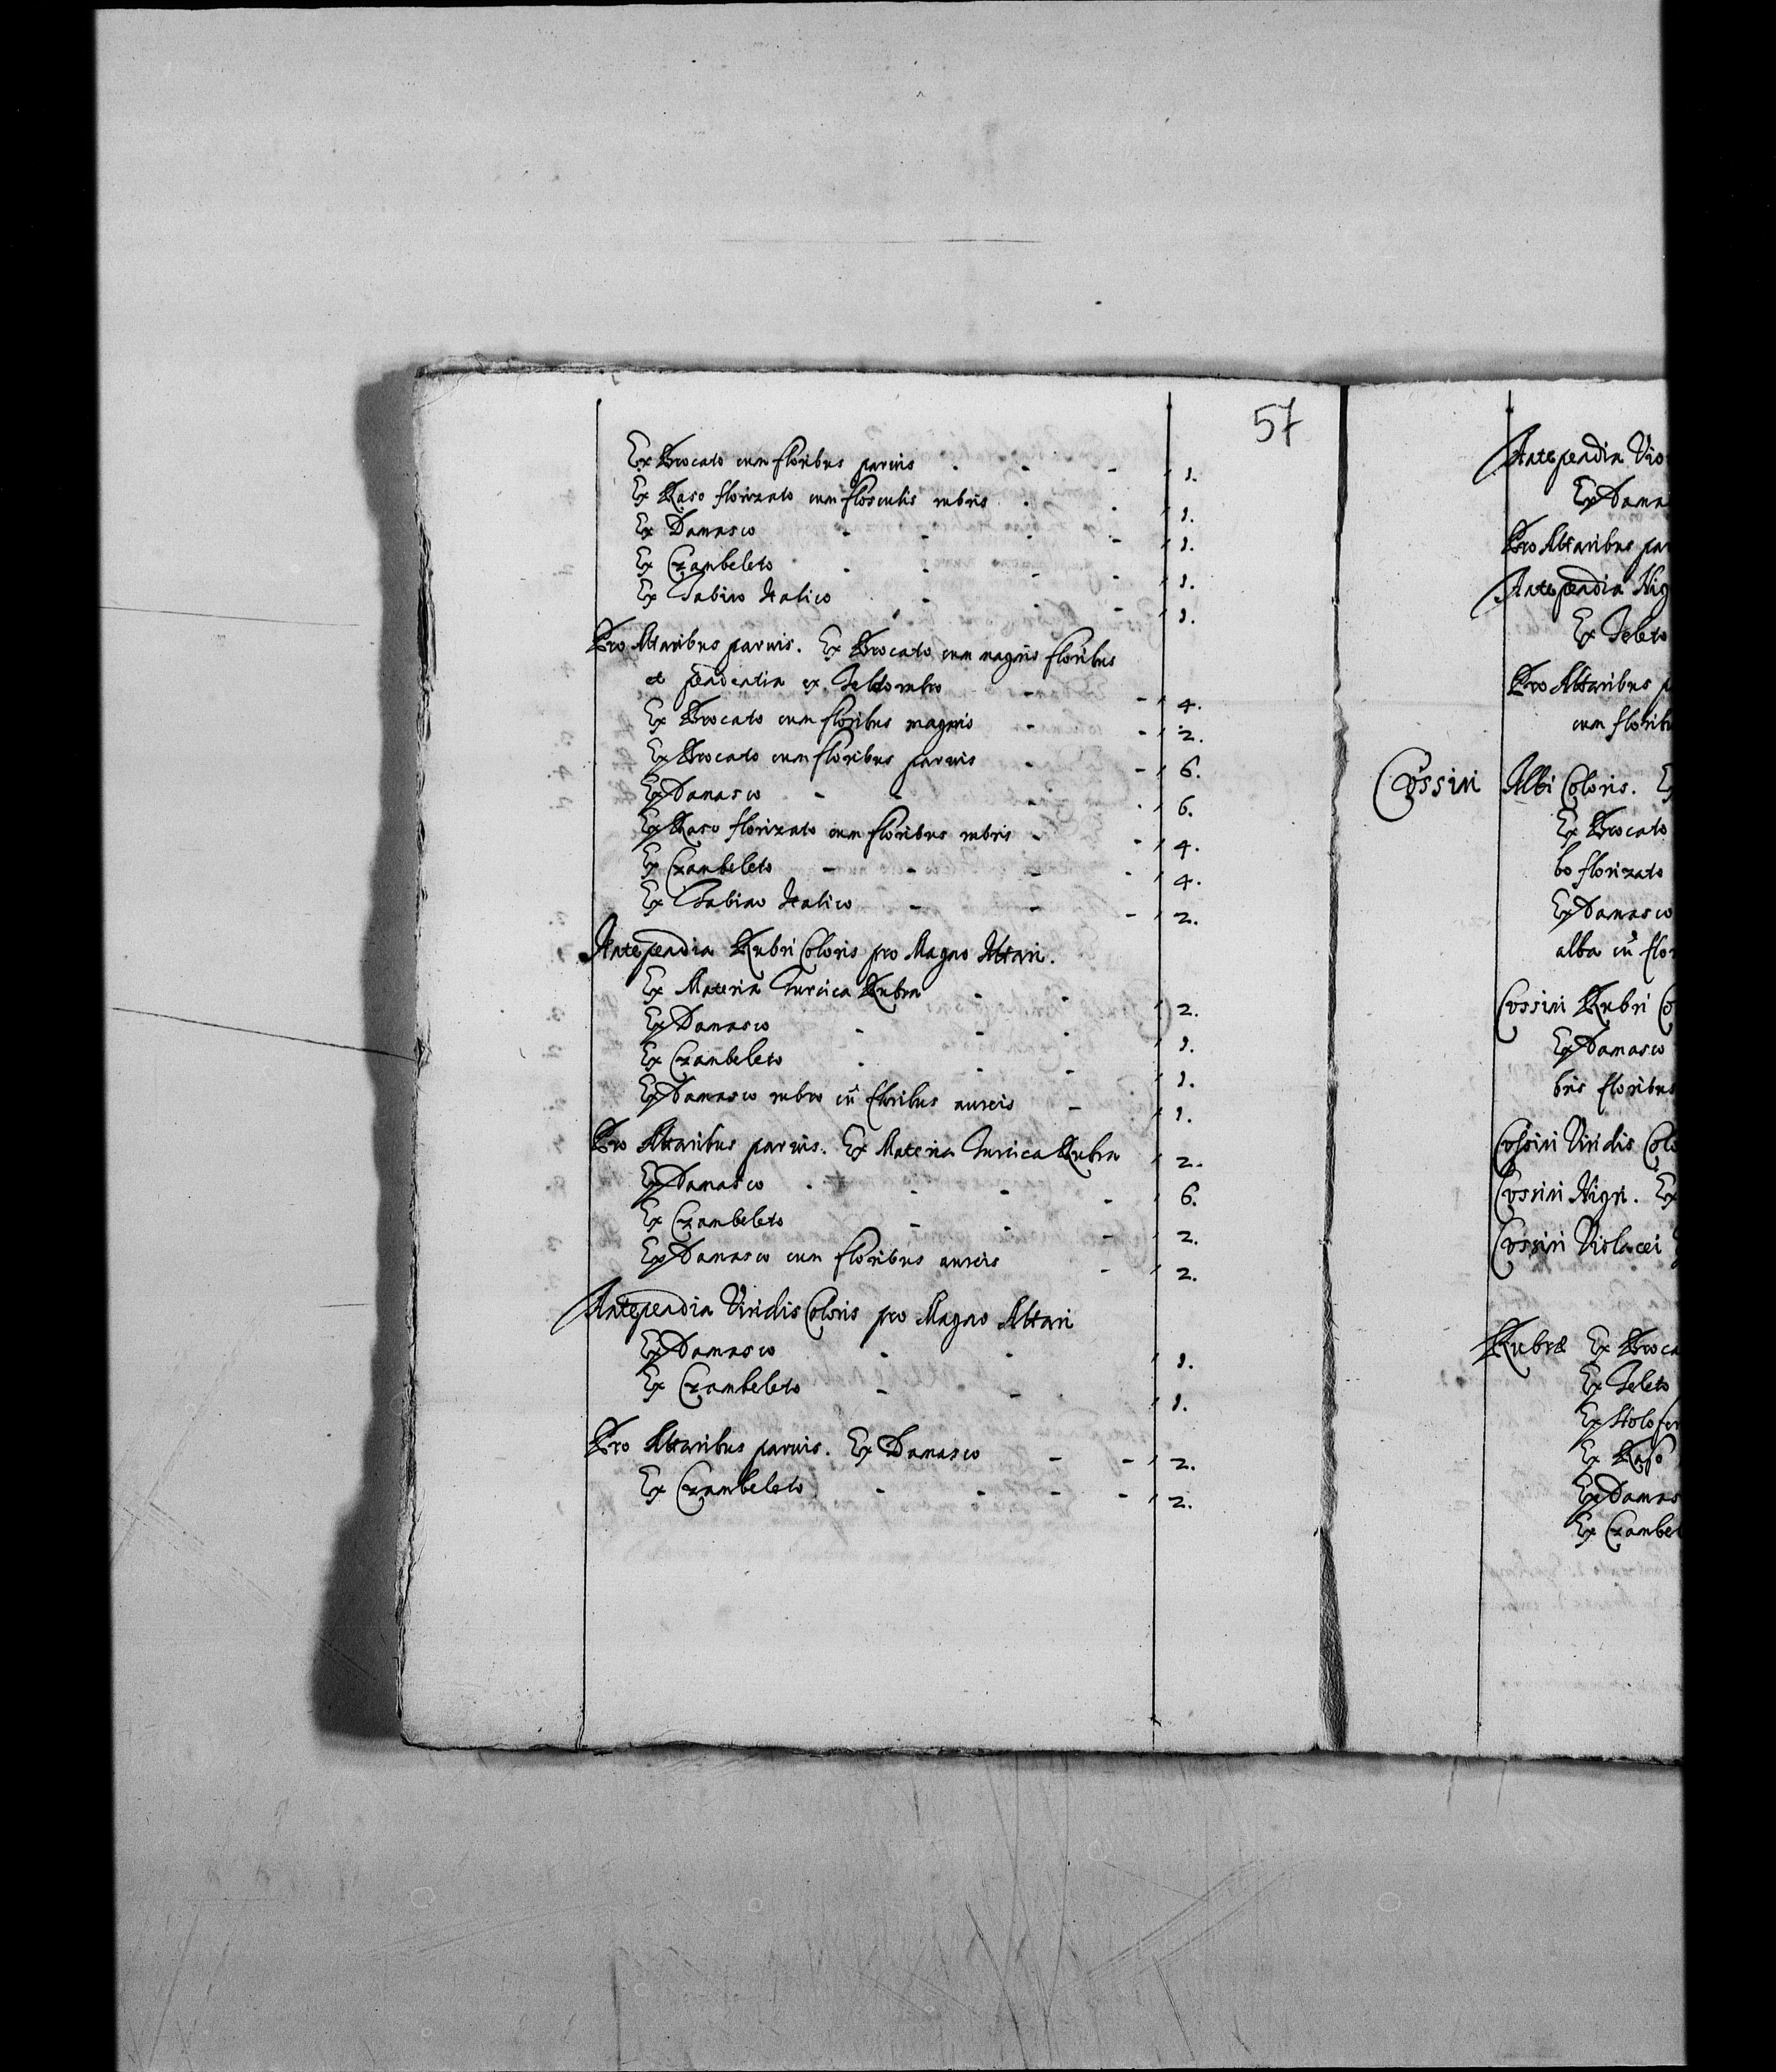 57
Ex Brocato cum floribus parvis - - - 1.
Ex Raso florizato cum flosculis rubris - - 1.
Ex Damasco - - - - 1.
Ex Czambeleto - - - - 1.
Ex Tabino Italico - - - 1.
Pro Altaribus parvis. Ex Brocato cum magnis floribus
et pendentia ex Teleto rubro - - 4.
Ex Brocato cum floribus magnis - - 2.
Ex Brocato cum floribus parvis - - 6.
Ex Damasco - - - - 6.
Ex Raso florizato cum floribus rubris - - 4.
Ex Czambeleto - - - - 4.
Ex Tabino Italico - - - 2.
Antependia Rubri Coloris pro Magno Altari.
Ex Materia Turcica Rubra - - 2.
Ex Damasco - - - 1.
Ex Czambeleto - - - 1.
Ex Damasco rubro cũ floribus aureis - 1.
Pro Altaribus parvis. Ex Materia Turcica Rubra 2.
Ex Damasco - - - - 6.
Ex Czambeleto - - - 2.
Ex Damasco cum floribus aureis - 2.
Antependia Viridis Coloris pro Magno Altari
Ex Damasco - - 1.
Ex Czambeleto - - 1.
Pro Altaribus parvis. Ex Damasco - - 2.
Ex Czambeleto - - - - 2.
Antependia Vio
Ex Dama
Pro Altaribus par
Antependia Nig
Ex Teleto
Pro Altaribus p
cum florib
Cussini Albi Coloris. Ex
Ex Brocato
bo florizato
Ex Damasco
alba cũ flor
Cussini Rubri Co
Ex Damasco
bris floribus
Cussini Viridis Colo
Cussini Nigri. Ex
Cussini Violacei
Rubræ Ex Broca
Ex Teleto
Ex
Ex Raso
Ex Damas
Ex Czambel